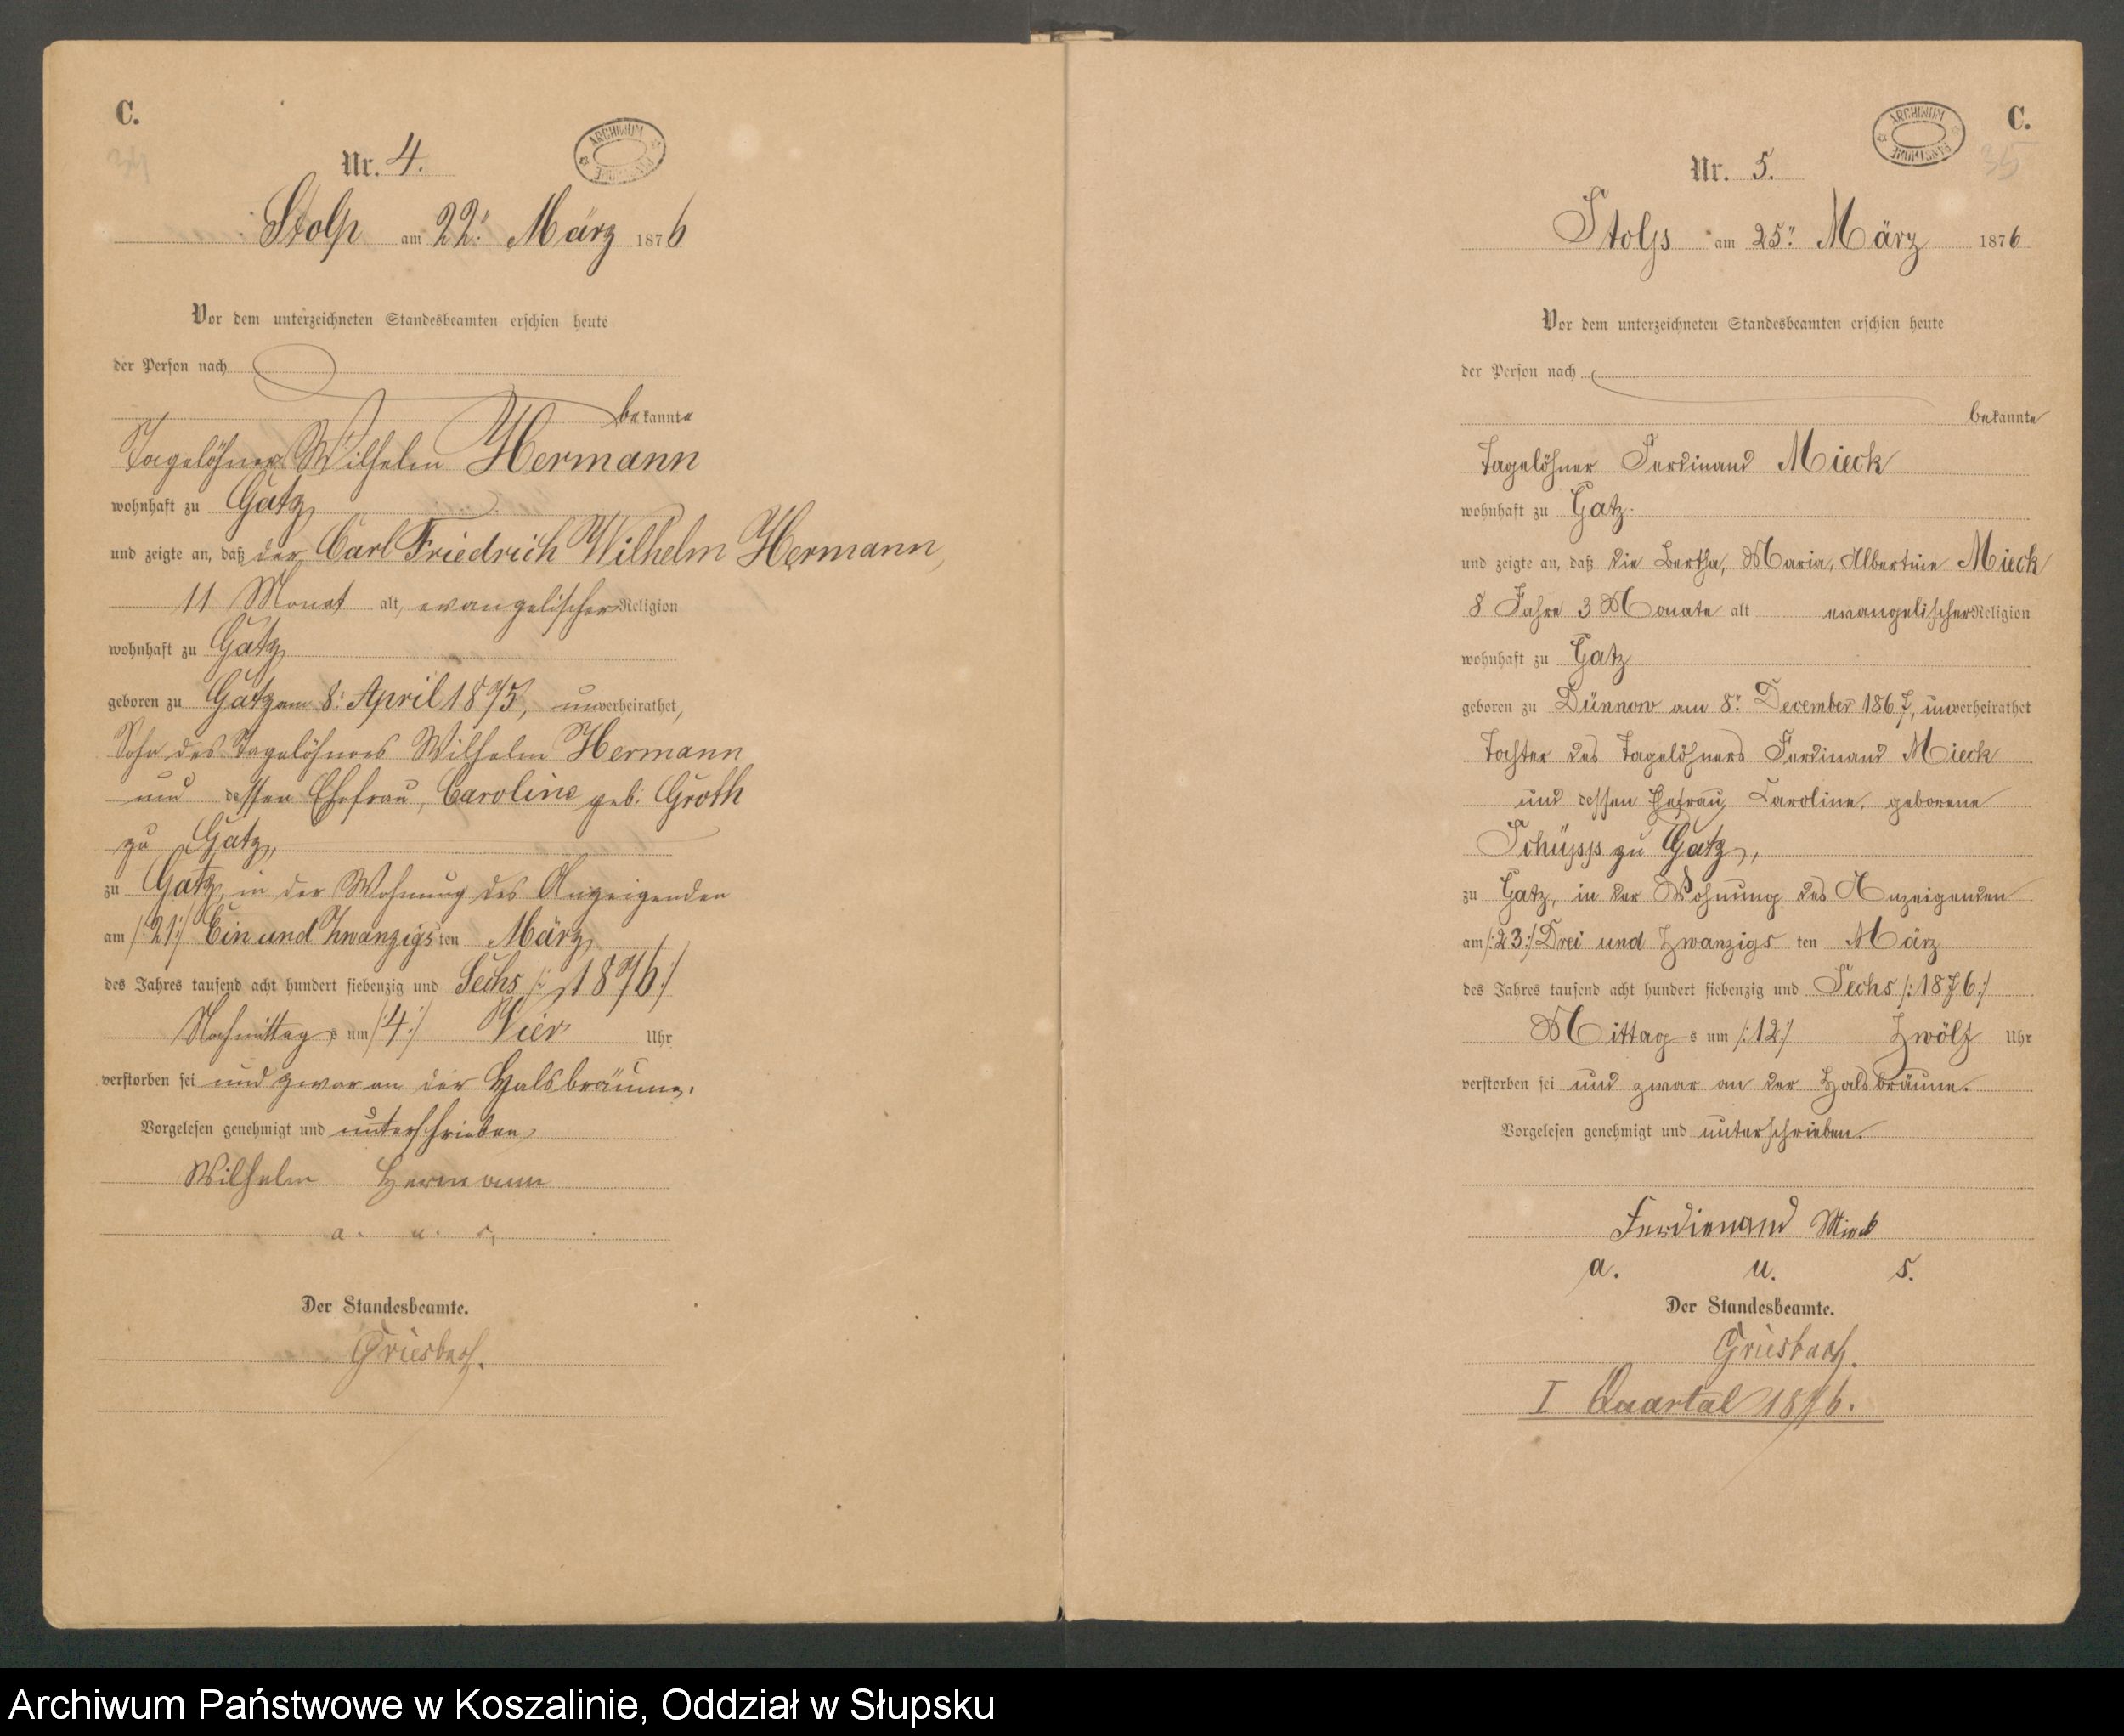 C.
34
Nr. 4.
ARCHIWUM
PAŃSTWOWE
Stolp am 22ᵗ: März 1876
Vor dem unterzeichneten Standesbeamten erschien heute
der Person nach
bekannte
Tagelöhner Wilhelm Hermann
wohnhaft zu Gatz
und zeigte an, daß der Carl Friedrich Wilhelm Hermann,
11 Monat alt, evangelischer Religion
wohnhaft zu Gatz
geboren zu Gatz am 8: April 1875, unverheirathet,
Sohn des Tagelöhners Wilhelm Hermann
und dessen Ehefrau, Caroline geb: Groth
zu Gatz,
zu Gatz, in der Wohnung des Anzeigenden
am /:21:/ Ein und Zwanzigsten März
des Jahres tausend acht hundert siebenzig und Sechs /: 1876:/
Nachmittags um /:4:/ Vier Uhr
verstorben sei und zwar an der Halsbräune.
Vorgelesen genehmigt und unterschrieben
Wilhelm Hermann
a. u. s.
Der Standesbeamte.
Griesbach.
C.
35
Nr. 5.
ARCHIWUM
PAŃSTWOWE
Stolp am 25ᵗ: März 1876
Vor dem unterzeichneten Standesbeamten erschien heute
der Person nach
bekannte
Tagelöhner Ferdinand Mieck
wohnhaft zu Gatz.
und zeigte an, daß die Bertha, Maria, Albertine Mieck
8 Jahre 3 Monate alt evangelischer Religion
wohnhaft zu Gatz
geboren zu Dünnow am 8ᵗ: December 1867, unverheirathet
Tochter des Tagelöhners Ferdinand Mieck
und dessen Ehefrau, Caroline, geborene
Schüpp zu Gatz,
zu Gatz, in der Wohnung des Anzeigenden
am /:23:/ Drei und Zwanzigsten März
des Jahres tausend acht hundert siebenzig und Sechs /:1876:/
Mittags um /:12:/ Zwölf Uhr
verstorben sei und zwar an der Halsbräune.
Vorgelesen genehmigt und unterschrieben.
Ferdienand Mieck
a. u. s.
Der Standesbeamte.
Griesbach.
I Quartal 1876.
Archiwum Państwowe w Koszalinie, Oddział w Słupsku